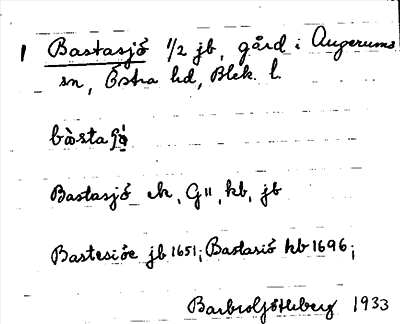 1 Bastasjö 1/2 jb, gård i Augerums
sn, Östra hd, Blek. l.
Bastasjö ek, G11, kb, jb
Bastesiöe jb 1651; Bastasiö kb 1696;
1933